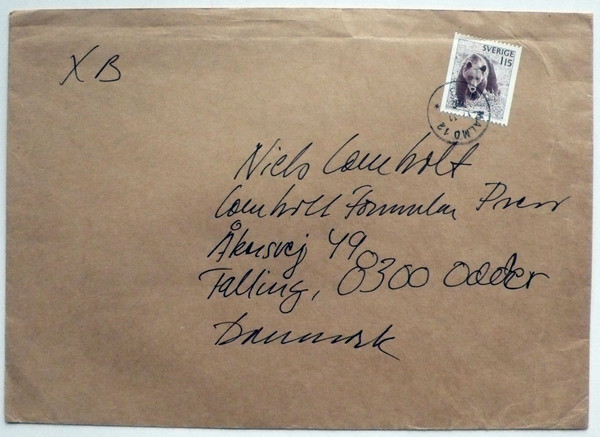 XB
SVERIGE
115
MALMÖ 12
Niels Lomholt
Lomholt Formular Press
Åkersvej 49
Falling, 8300 Odder
Danmark